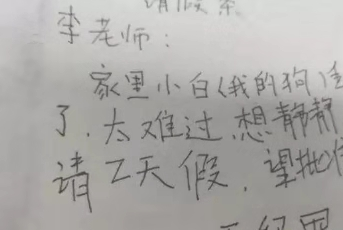 请假条
李老师：
家里小白(我的狗)走
了，太难过，想静静
请2天假，望批准